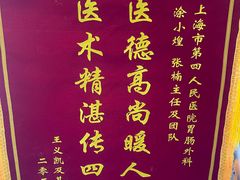 上海市第四人民医院胃肠外科
涂小煌 张楠主任及团队
医德高尚暖人
医术精湛传四
王义凯及其
二零